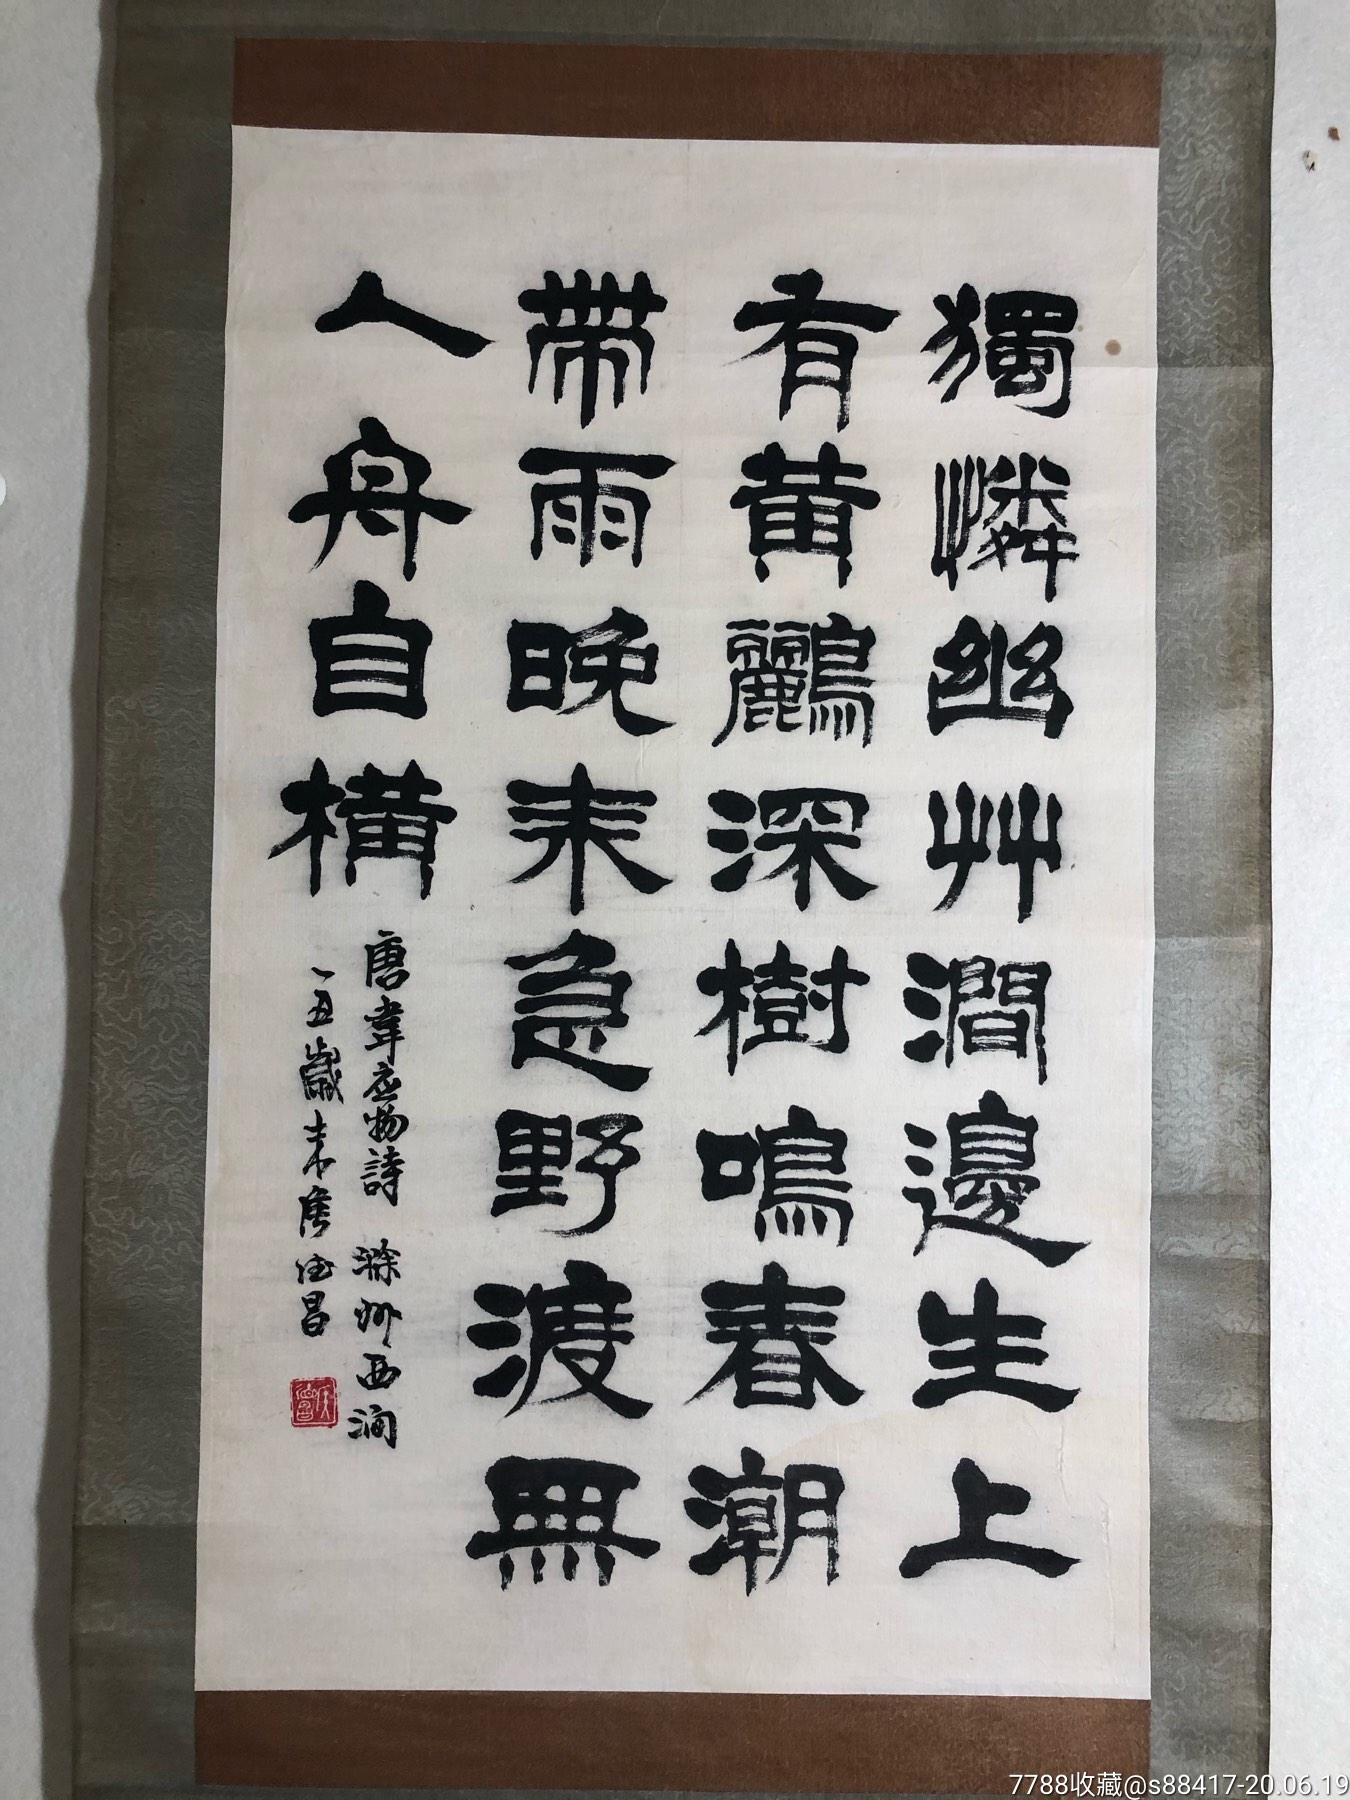 獨憐幽艸澗邊生上
有黄鸝深樹鳴春潮
帶雨晚来急野渡無
人舟自横
唐韋应物詩 滁州西涧
乙丑歲末侯德昌
7788收藏@s88417-20.06.19